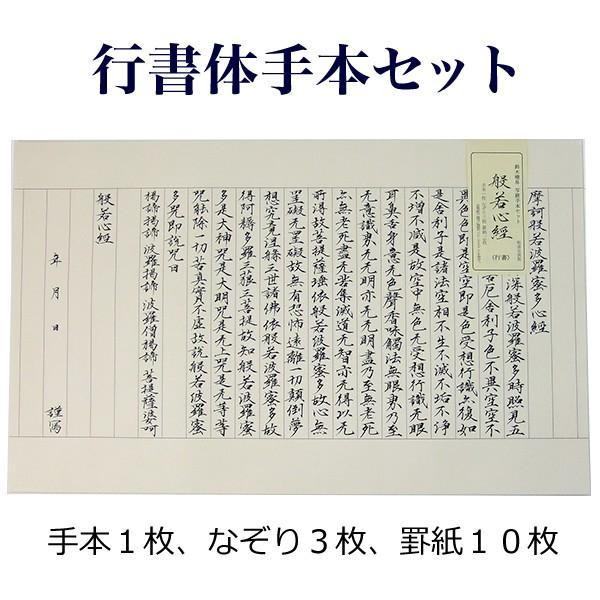 行書体手本セット
般若心經
(行書)
摩訶般若波羅蜜多心經
深般若波羅蜜多時照見五
舍利子色不異空空不
異色色即是空空即是色受想行識亦復如
是舍利子是諸法空相不生不滅不垢不淨
不增不減是故空中無色无受想行識无眼
耳鼻舌身意无色聲香味觸法無眼界乃至
无意識界无无明亦无无明盡乃至無老死
亦無老死盡无苦集滅道无智亦无得以无
所得故菩提薩埵依般若波羅蜜多故心無
罣礙无罣礙故無有恐怖遠離一切顛倒夢
想究竟涅槃三世諸佛依般若波羅蜜多故
得阿耨多羅三藐三菩提故知般若波羅蜜
多是大神咒是大明咒是无上咒是无等等
咒能除一切苦真實不虛故說般若波羅蜜
多咒即說咒曰
揭諦揭諦 波羅揭諦 波羅僧揭諦 菩提薩婆訶
般若心經
年 月 日 謹寫
手本１枚、なぞり３枚、罫紙１０枚